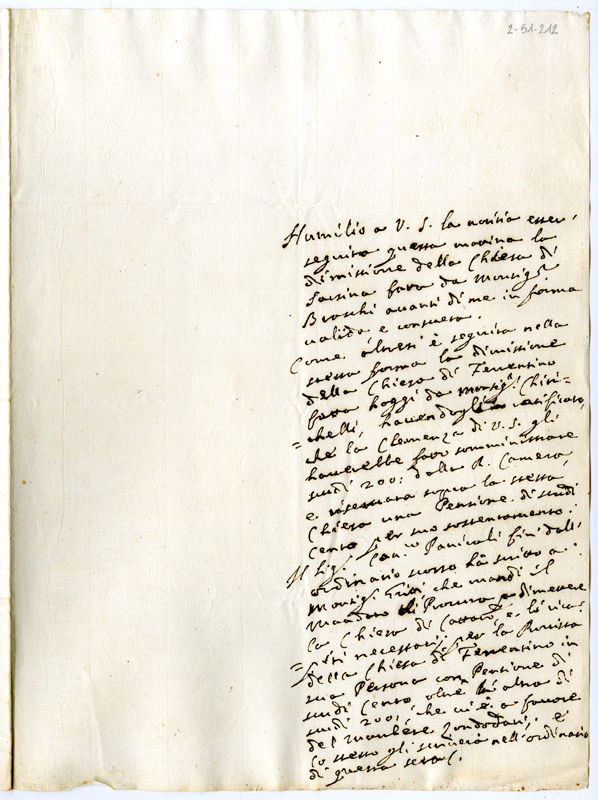 2-51-212
Humilio a V. S. la notitia esser,
seguita questa matina la
dimissione della Chiesa di
Sarsina fatta da Monsig.r
Braschi avanti di me in forma
valida e consueta.
Come altresi è seguita nella
stessa forma la dimissione
della Chiesa di Ferentino
fatta hoggi da Monsig.r Chiri=
=chelli, havendogli ratificato,
che la Clemenza di V. S. gli
haverebbe fatto somministrare
scudi 200: dalla R. Camera,
e riservata sopra la stessa
Chiesa una Pensione di scudi
Cento per suo sostentamento.
Il Sig. Can.co Panicali fin dall'
ordinario scorso hà scritto a
Monsig.r che mandi il
Mandato di Procura dimettere
la Chiesa di Cattaro, e le
necessarij per la Provista
della Chiesa di Ferentino in
sua Persona con Pensione di
scudi Cento oltre l'altra di
scudi 200: che vi è a favore
del Zondadari, e
lo stesso gli scriverà nell'ordinario
di questa sera.